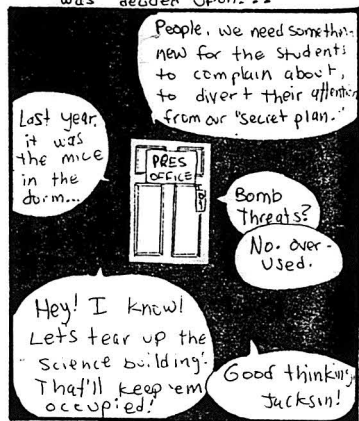 was decided upon...
People, we need something
new for the students
to complain about,
to divert their attention
from our "secret plan."
Last year,
it was
the mice
in the
dorm...
PRES
OFFICE
Bomb
Threats?
No. over-
used.
Hey! I know!
Let's tear up the
science building!
That'll keep 'em
occupied!
Good thinking,
Jacksin!